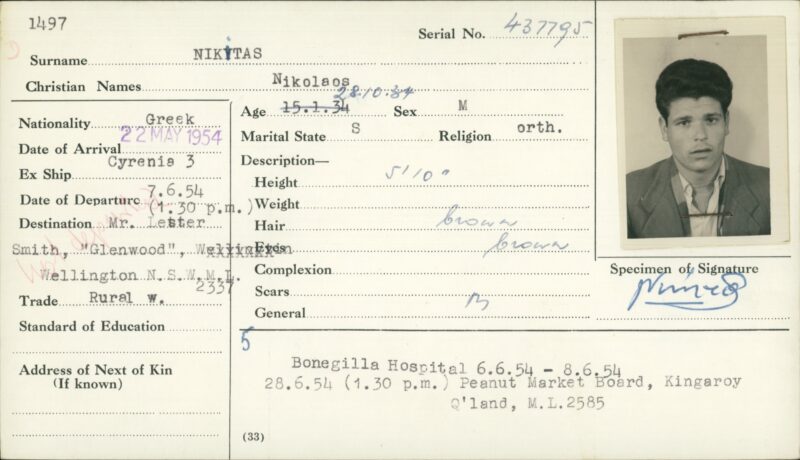 1497
Serial No. 437795
Surname NIKITAS
Christian Names Nikolaos
28.10.34
Age 15.1.34 Sex M
Marital State S Religion orth.
Nationality Greek
Date of Arrival 22 MAY 1954
Ex Ship Cyrenia 3
Date of Departure 7.6.54
(1.30 p.m.)
Destination Mr. Lester
Smith, "Glenwood",
Wellington N.S.W.M.L.
2337
Trade Rural w.
Standard of Education
Address of Next of Kin
(If known)
Description—
Height 5'10"
Weight
Hair brown
Eyes brown
Complexion
Scars
General
Specimen of Signature
5
Bonegilla Hospital 6.6.54 - 8.6.54
28.6.54 (1.30 p.m.) Peanut Market Board, Kingaroy
Q'land, M.L.2585
(33)